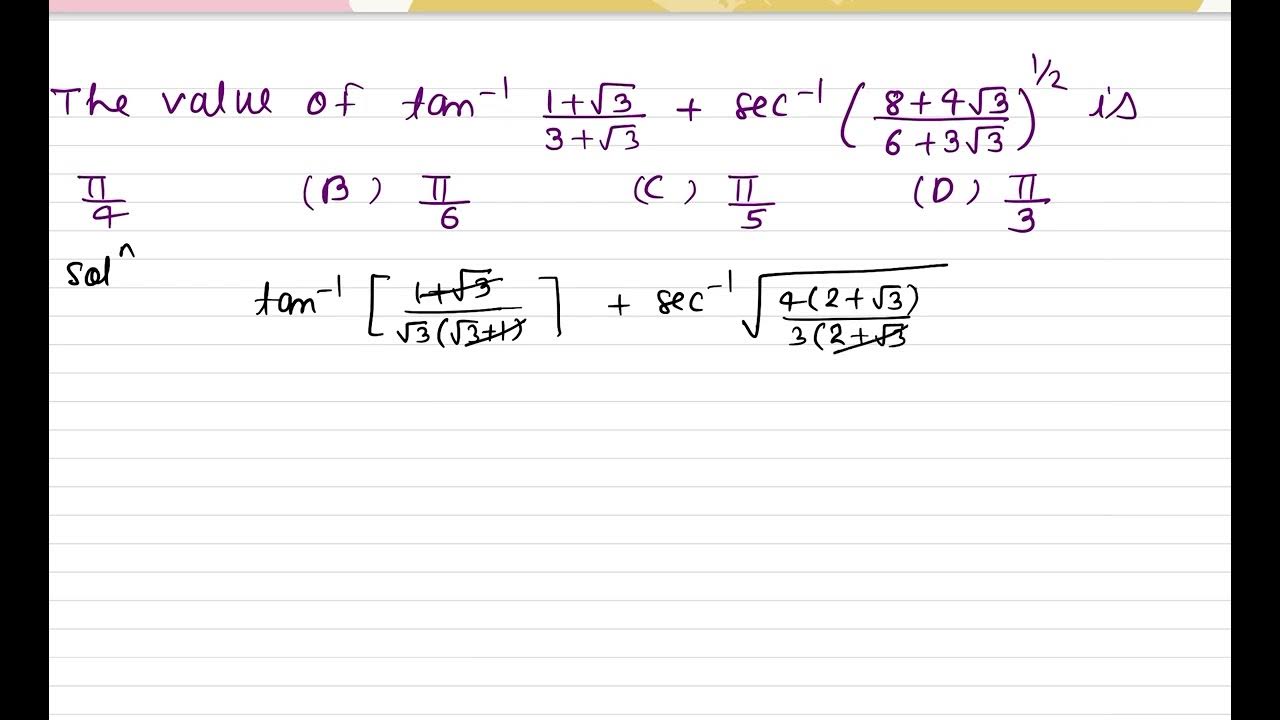 The value of tan⁻¹ (1+√3)/(3+√3) + sec⁻¹ ((8+4√3)/(6+3√3))^1/2 is
π/4 (B) π/6 (C) π/5 (D) π/3
solⁿ
tan⁻¹ [(1+√3)/(√3(√3+1))] + sec⁻¹ √(4(2+√3)/3(2+√3)